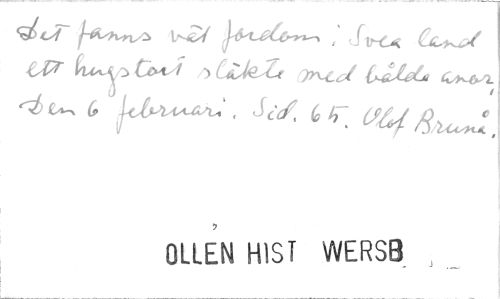 Det fanns väl fordom i Svea land
ett hugstort släkte med bålda anor.
Den 6 februari. Sid. 65. Olof Brunå.
OLLEN HIST WERSB